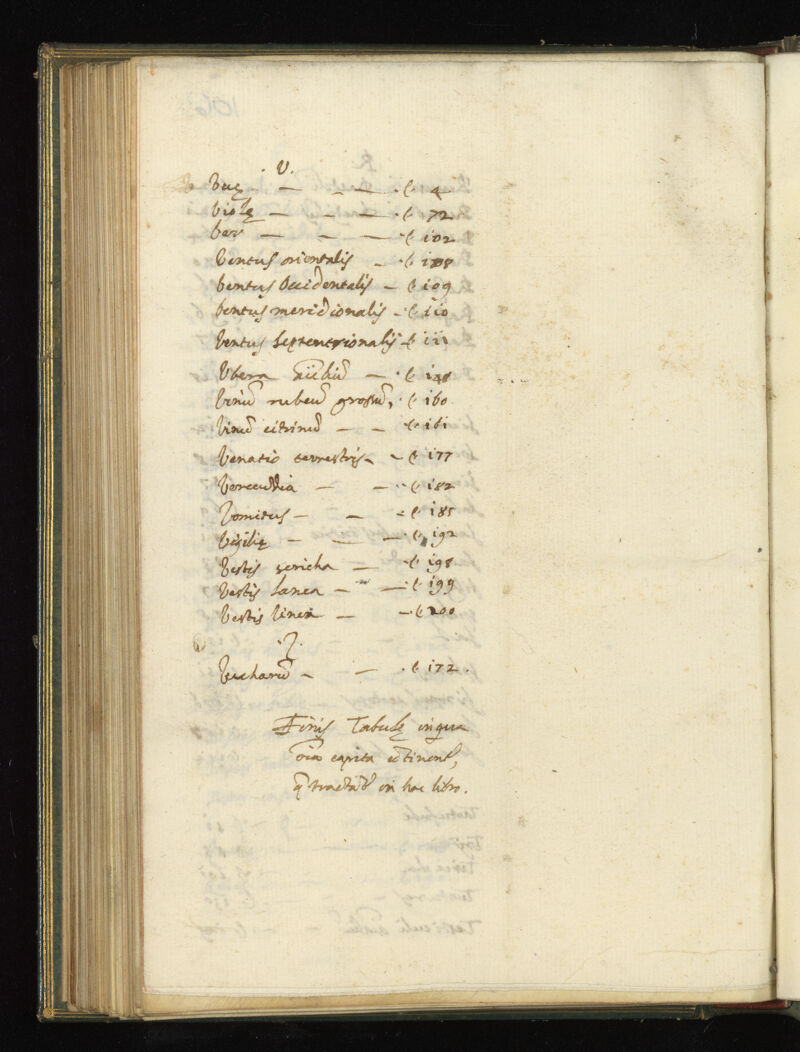 .V.
Vuę — — — .c 4
Violę — — — .c 72
Ver — — — .c 102
Ventus orientalis — .c 108
Ventus Occidentalis — c 109
Ventus meridionalis — .c 110
Ventus Septentrionalis c 111
Vbera — .c 148
Vinũ rubeũ grossũ, .c 160.
Vinũ citrinũ — — c 161
Venatio terrestris — — c 177
— — .c 182
Vomitus — — — c 185
Vigilię — — — .c 192
Vestis sericha — .c 198
Vestis lanea — — .c 199
Vestis linea — — .c 200
.Z.
Zucharũ — — .c 172.
Finis Tabulę in qua
oĩa capita cõtinent,
q̃ tractãt in hoc libro.